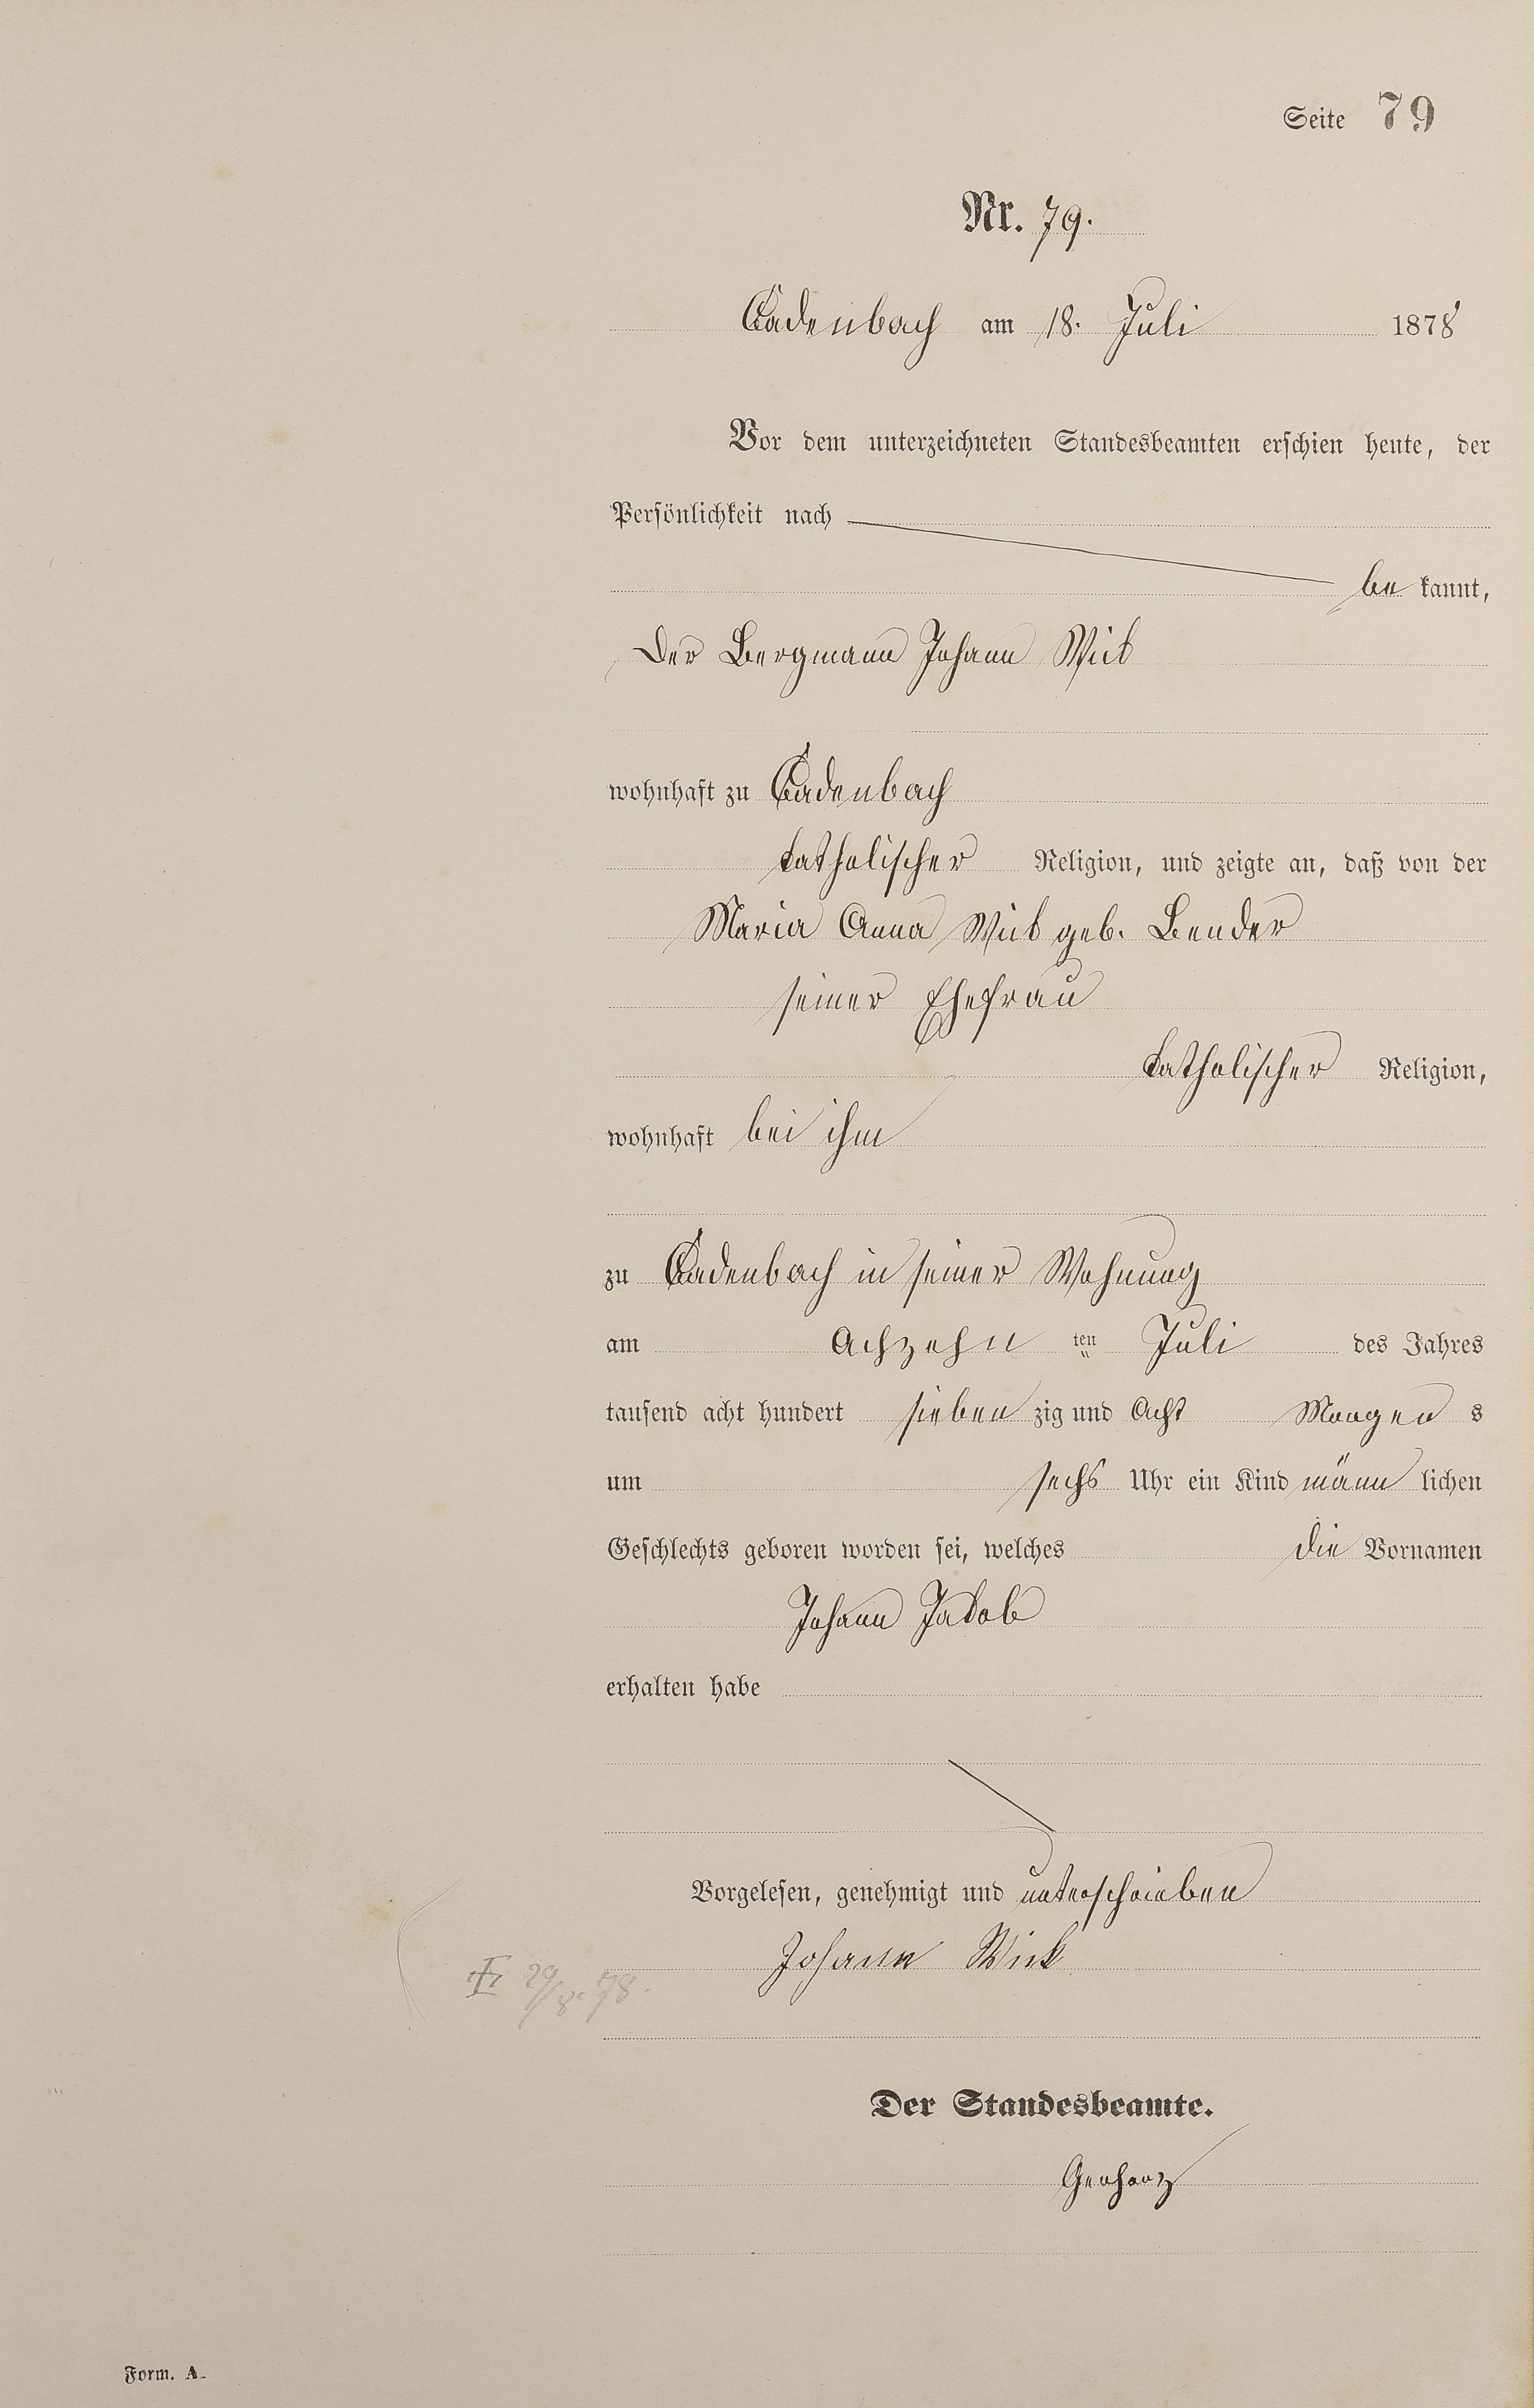 Seite 79
Nr. 79.
Cadenbach am 18. Juli 1878
Vor dem unterzeichneten Standesbeamten erschien heute, der
Persönlichkeit nach
be kannt,
der Bergmann Johann Wick
wohnhaft zu Cadenbach
katholischer Religion, und zeigte an, daß von der
Maria Anna Wick geb. Bender
seiner Ehefrau
katholischer Religion,
wohnhaft bei ihm
zu Cadenbach in seiner Wohnung
am Achzehn ten Juli des Jahres
tausend acht hundert sieben zig und Acht Morgen s
um sechs Uhr ein Kind männ lichen
Geschlechts geboren worden sei, welches die Vornamen
Johann Jakob
erhalten habe
Vorgelesen, genehmigt und unterschrieben
Johann Wick
29/8. 78.
Der Standesbeamte.
Gerharz
Form. A.